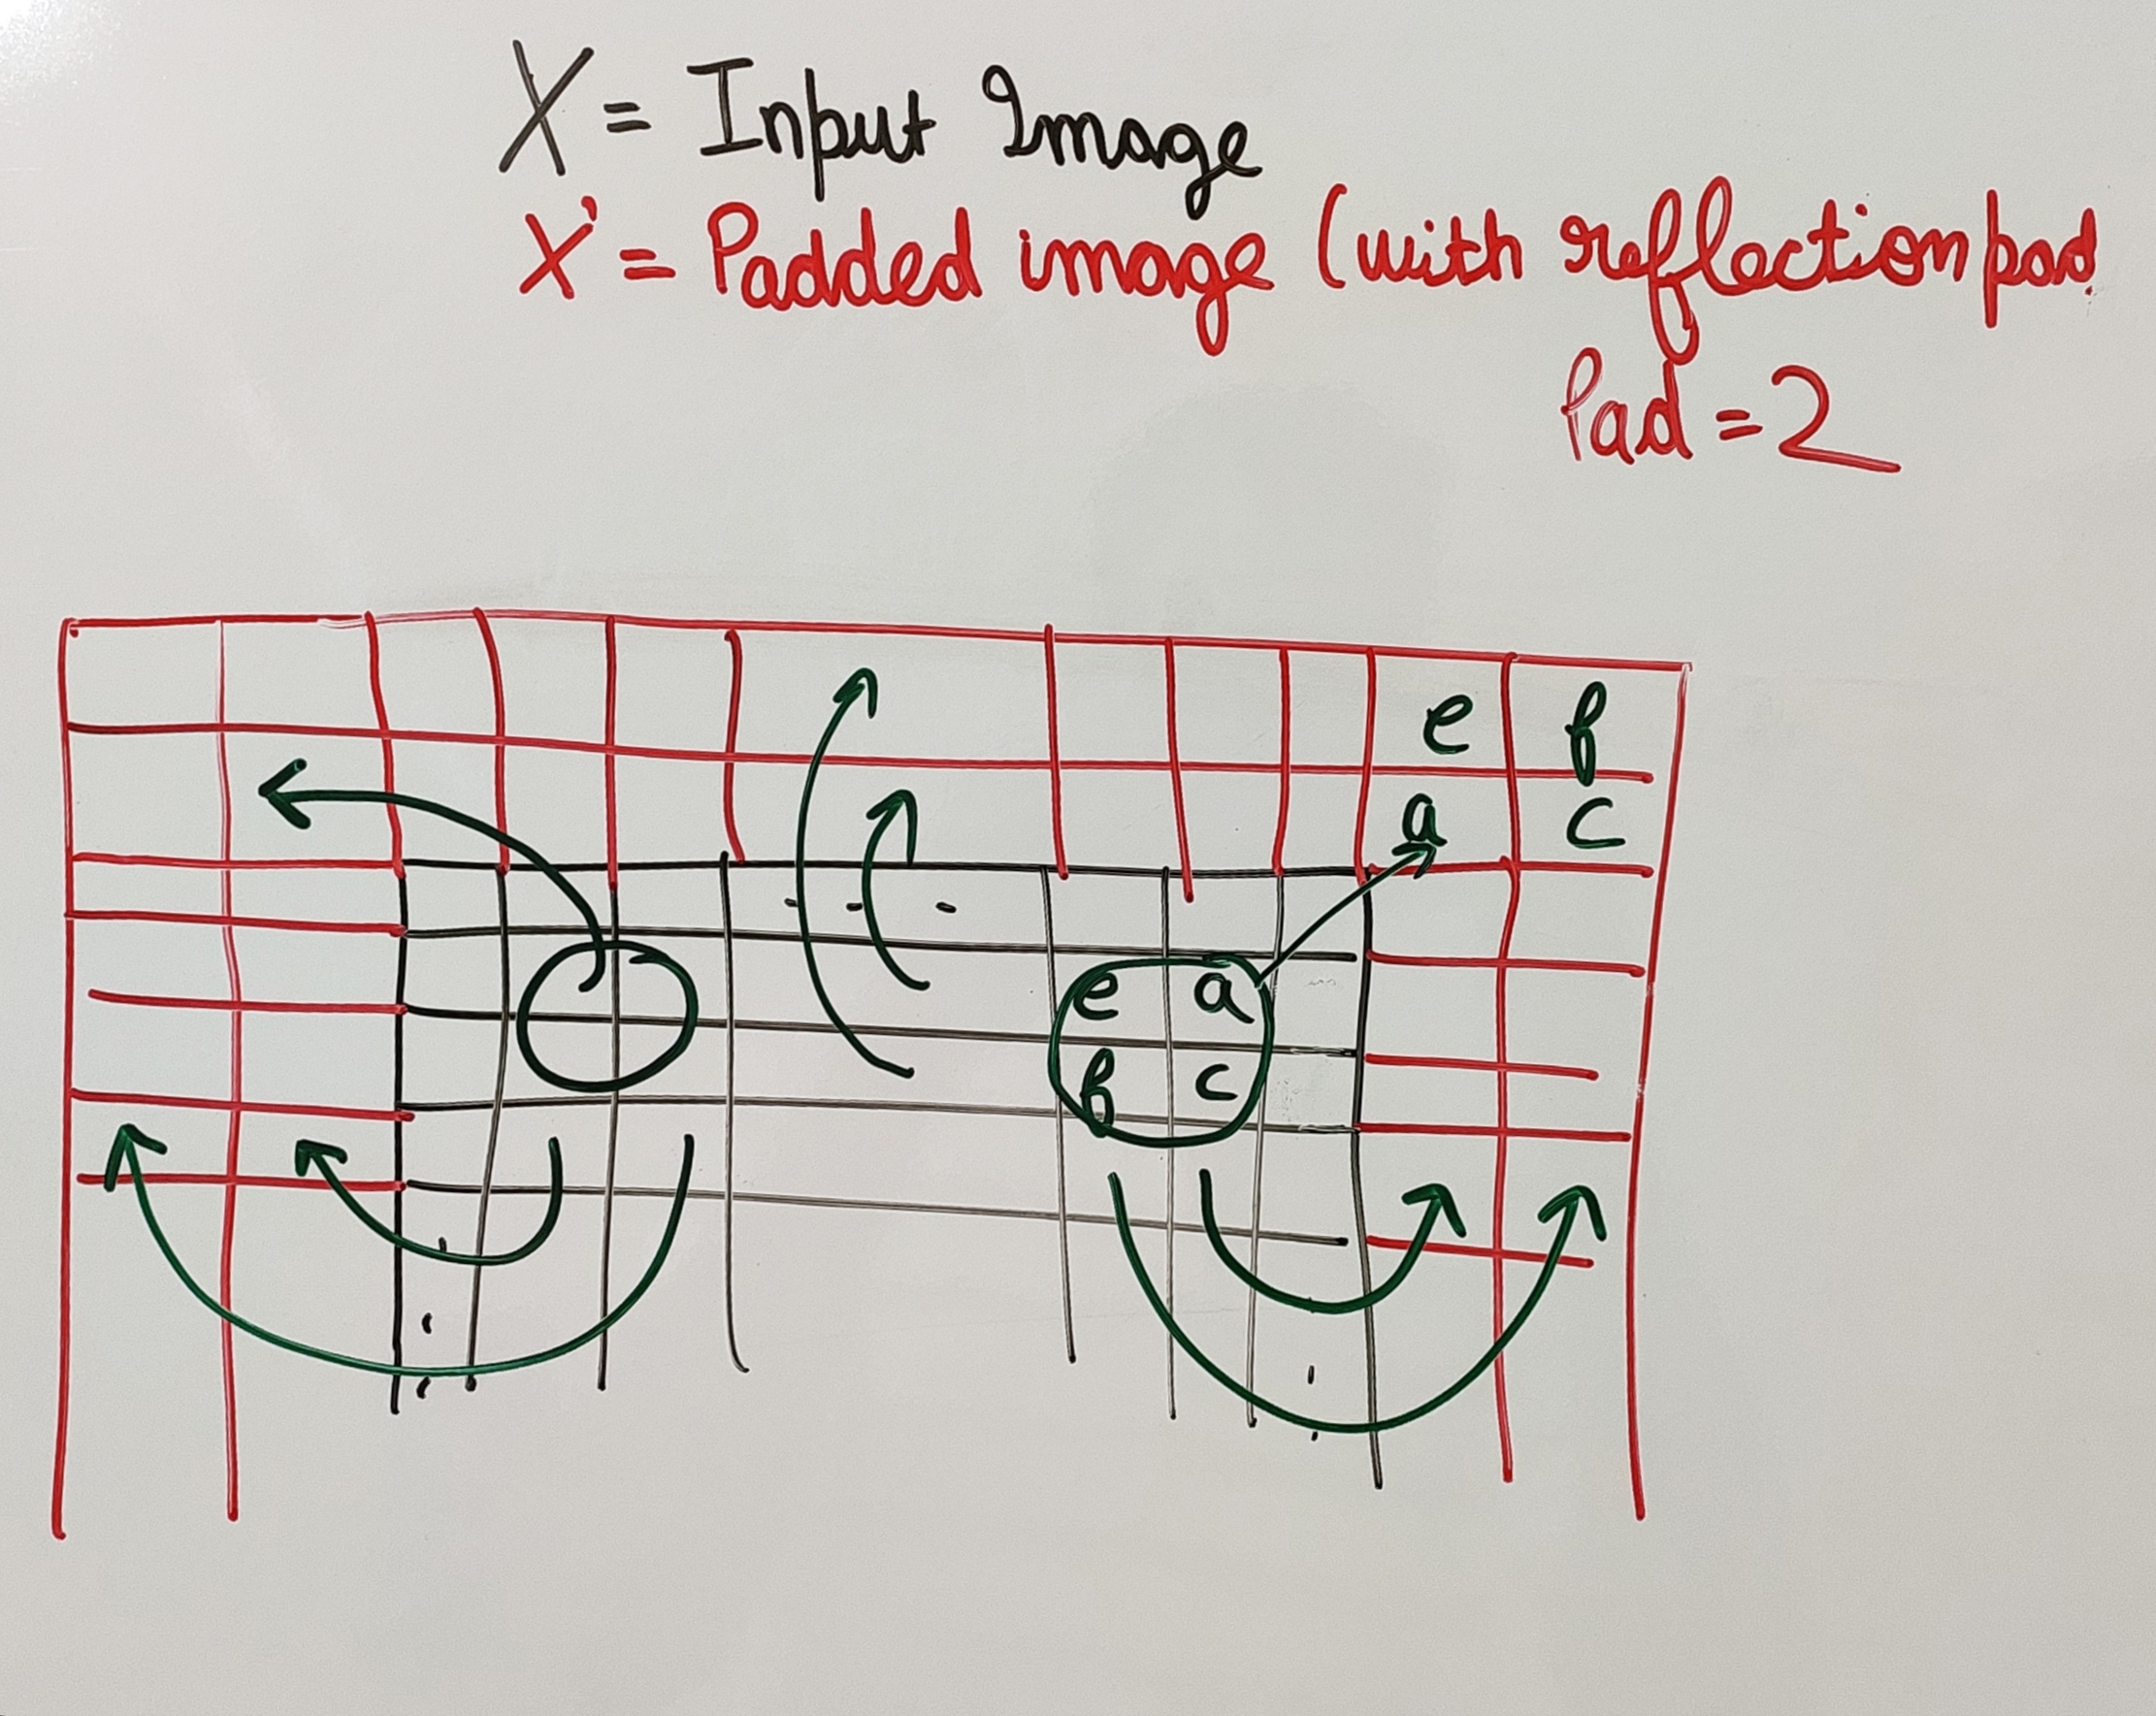 X = Input Image
X' = Padded image (with reflection pad.
Pad = 2
e f
a c
e a
f c